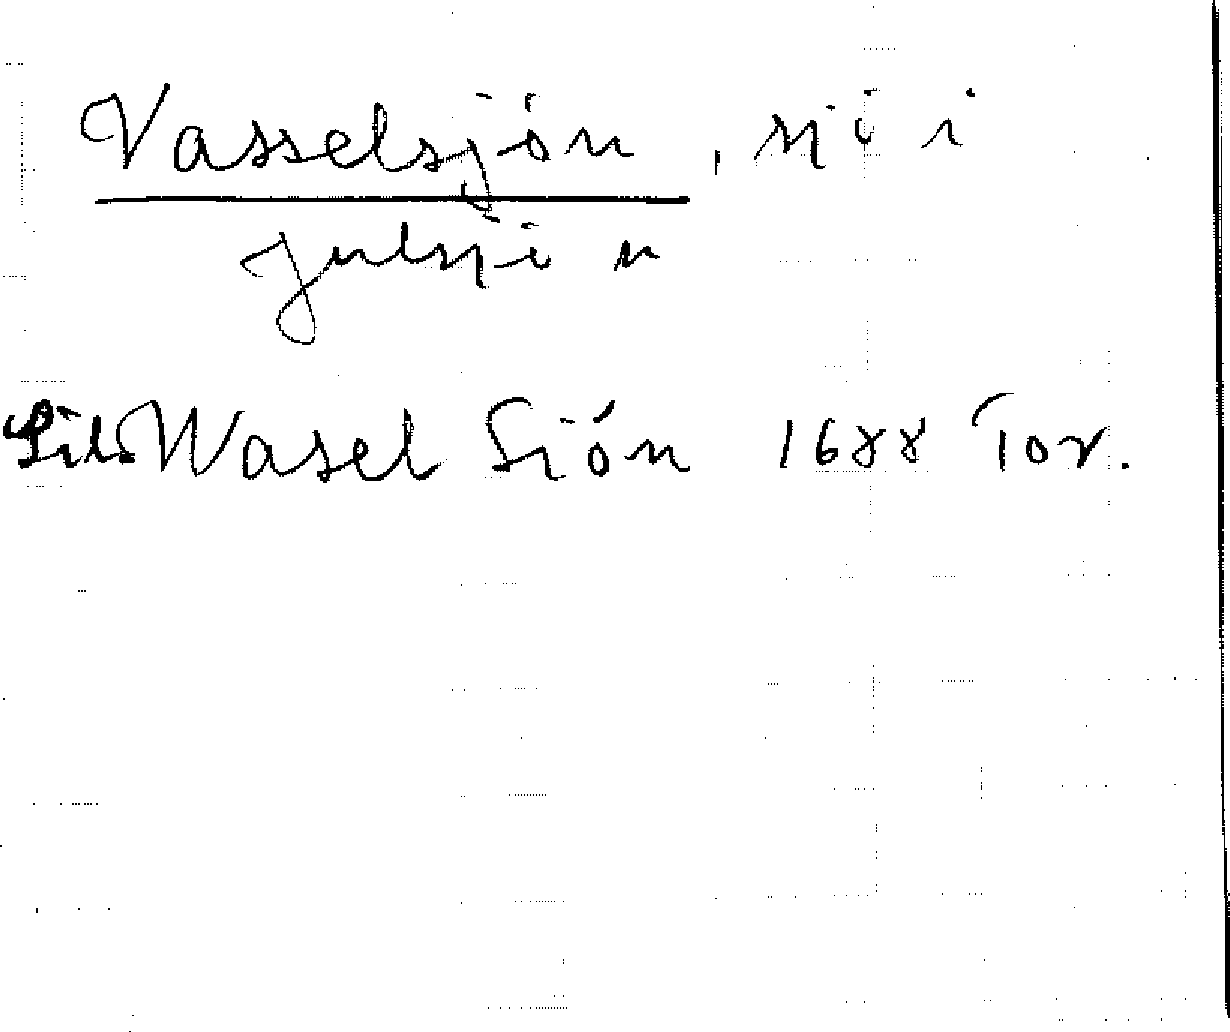 Vasselsjön, sjö i
Julsjön
Lil Wasel Siön 1688 Tor.